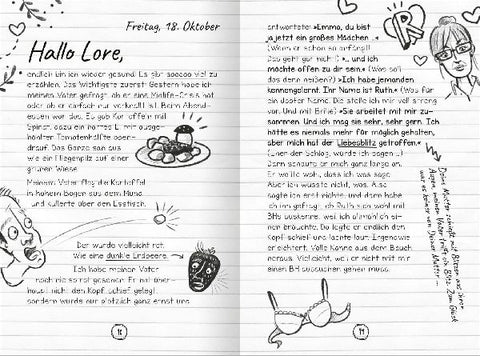 Freitag, 18. Oktober
Hallo Lore,
endlich bin ich wieder gesund. Es gibt soooo viel zu
erzählen. Das Wichtigste zuerst: Gestern habe ich
meinen Vater gefragt, ob er eine Midlife-Crisis hat
oder ob er einfach nur verknallt ist. Beim Abend-
essen war das. Es gab Kartoffeln mit
Spinat, dazu ein hartes Ei mit ausge-
höhlten Tomatenhälfte oben-
drauf. Das Ganze sah aus
wie ein Fliegenpilz auf einer
grünen Wiese.
Meinem Vater flog die Kartoffel
in hohem Bogen aus dem Mund
und kullerte über den Esstisch.
Der wurde vielleicht rot.
Wie eine dunkle Erdbeere.
Ich habe meinen Vater
noch nie so rot gesehen. Er hat über-
haupt nicht den Kopf schief gelegt,
sondern wurde nur plötzlich ganz ernst und
antwortete: »Emma, du bist
ja jetzt ein großes Mädchen ...«
(Wenn er schon so anfängt!
Das geht gar nicht!) »... und ich
möchte offen zu dir sein.« (Was soll
das denn heißen?) »Ich habe jemanden
kennengelernt. Ihr Name ist Ruth.« (Was für
ein doofer Name. Die stelle ich mir voll streng
vor. Und mit Brille) »Sie arbeitet mit mir zu-
sammen. Und ich mag sie sehr, sehr gern. Ich
hätte es niemals mehr für möglich gehalten,
aber mich hat der Liebesblitz getroffen.«
(Eher der Schlag, würde ich sagen ...)
Dann schaute er mich ganz lange an.
Er wollte wohl, dass ich was sage.
Aber ich wusste nicht, was. Also
sagte ich erst nichts und dann habe
ich ihn gefragt, ob Ruth sich wohl mit
BHs auskenne, weil ich allmählich ei-
nen bräuchte. Da legte er endlich den
Kopf schief und lachte laut. Irgendwie
er
Volle Kanne aus dem Bauch
heraus. Vielleicht, weil er nicht mit mir
einen BH aussuchen gehen muss.
R
Deine Mutter